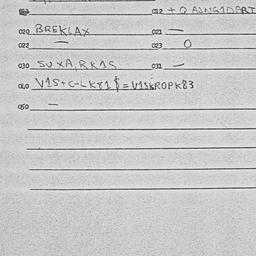 012 + Q AJNG1DPRT
020 BREKLAX 021 —
022 — 023 O
030 SUXA,RK1S 031 —
040 V1S+C-LK81$=V1SKROPK83
050 —